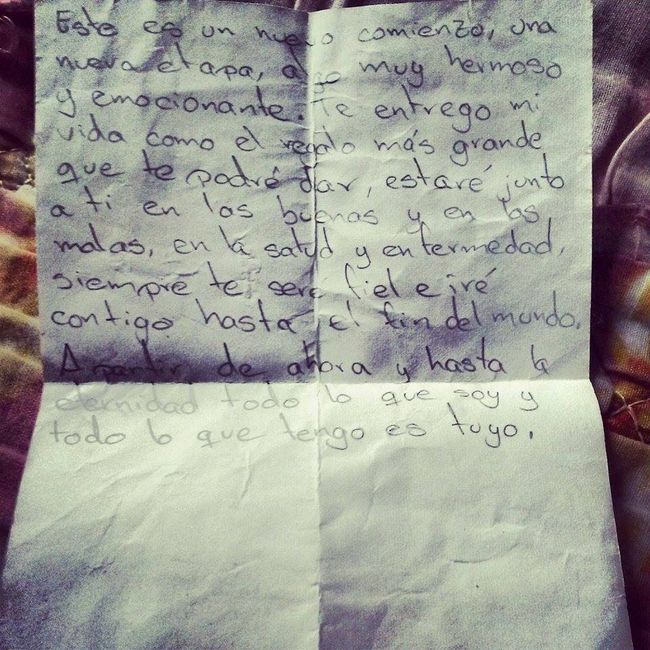 Este es un nuevo comienzo, una
nueva etapa, algo muy hermoso
y emocionante. Te entrego mi
vida como el regalo más grande
que te podré dar, estaré junto
a ti en las buenas y en las
malas, en la salud y enfermedad,
siempre te seré fiel e iré
contigo hasta el fin del mundo.
A partir de ahora y hasta la
eternidad todo lo que soy y
todo lo que tengo es tuyo.